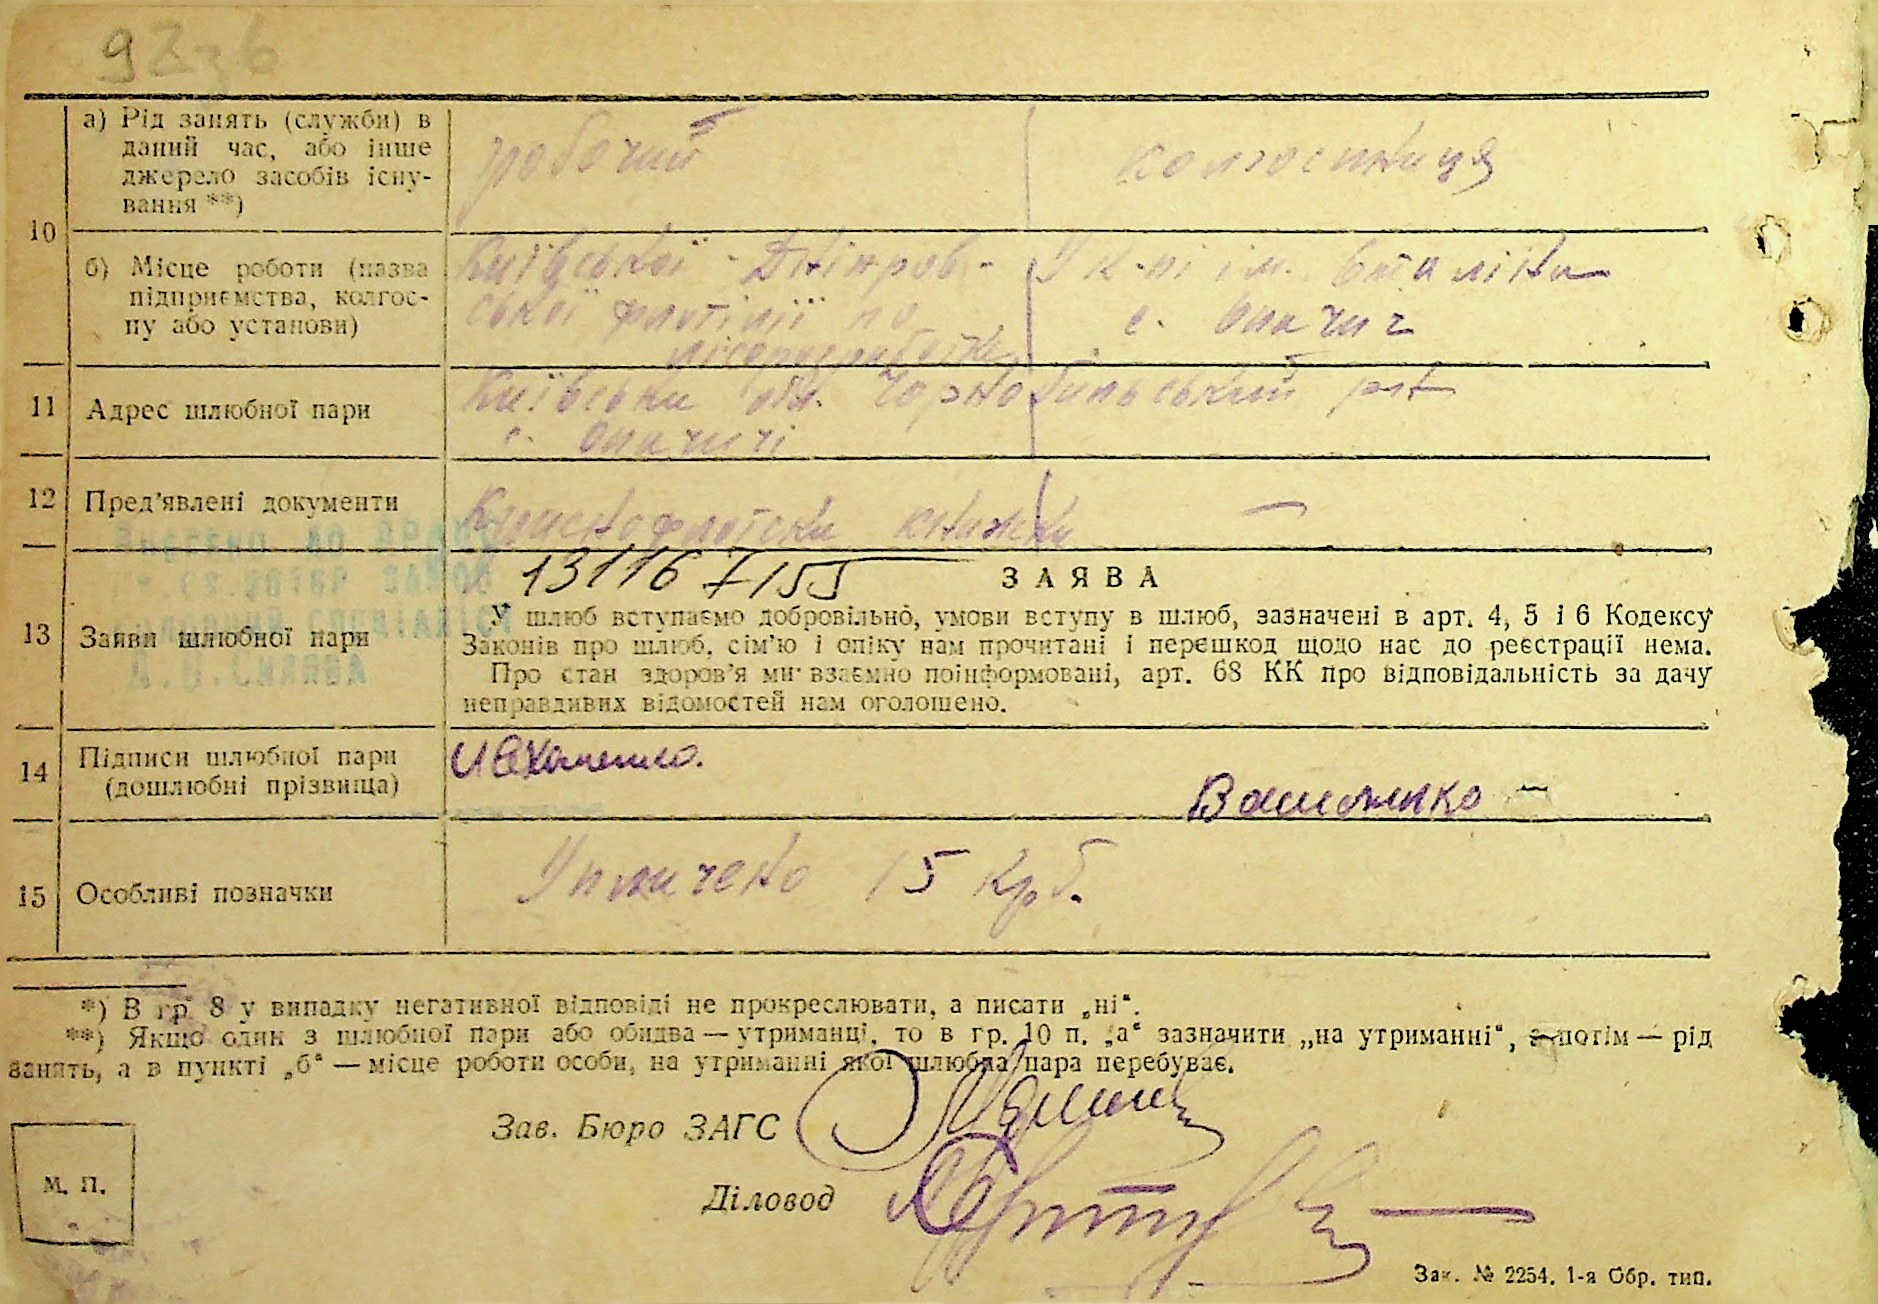 92зв
а) Рід занять (служби) в
даний час, або інше
джерело засобів існу-
вання **)
робочий
колгоспниця
10
б) Місце роботи (назва
підприємства, колгос-
пу або установи)
Київської - Дніпров-
ської флотілії по
лісорозробкам
У к-пі ім. Сталіна
с. Опачич
11
Адрес шлюбної пари
Київська обл. Чорнобильський р-н
с. Опачичі
12
Пред'явлені документи
Краснофлотська книжка
—
13
Заяви шлюбної пари
13116 7155
ЗАЯВА
У шлюб вступаємо добровільно, умови вступу в шлюб, зазначені в арт. 4, 5 і 6 Кодексу
Законів про шлюб, сім'ю і опіку нам прочитані і перешкод щодо нас до реєстрації нема.
Про стан здоров'я ми взаємно поінформовані, арт. 68 КК про відповідальність за дачу
неправдивих відомостей нам оголошено.
14
Підписи шлюбної пари
(дошлюбні прізвища)
15
Особливі позначки
Уплачено 15 крб.
*) В гр. 8 у випадку негативної відповіді не прокреслювати, а писати „ні“.
**) Якщо один з шлюбної пари або обидва — утриманці, то в гр. 10 п. „а“ зазначити „на утриманні“, а потім — рід
занять, а в пункті „б“ — місце роботи особи, на утриманні якої шлюбна пара перебуває.
Зав. Бюро ЗАГС
Діловод
М. П.
Зак. № 2254. 1-я Обр. тип.